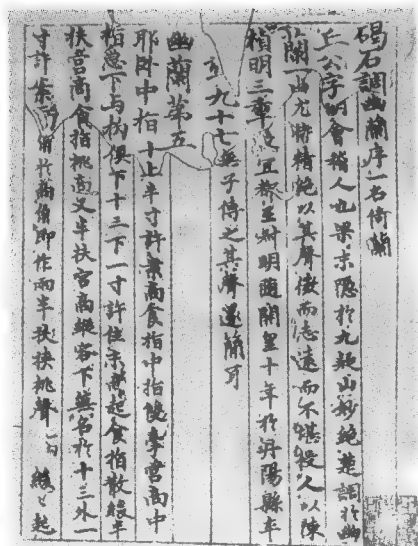 碣石調幽蘭序一名倚蘭
丘公字明會稽人也梁末隱於九疑山妙絕楚調於幽
蘭一曲尤特精絕以其聲微而志遠而不堪授人以陳
禎明三年授宜都王叔明隨開皇十年於丹陽縣卒
九十七無子傳之其聲遂簡耳
幽蘭第五
耶臥中指十上半寸許案商食指中指雙牽宮商中
指急下与拘俱下十三下一寸許住末商起食指散緩半
扶宮商食指挑商又半扶宮商縱容下無名於十三外一
寸許案商角於商角即作兩半扶挾挑聲一句緩緩起